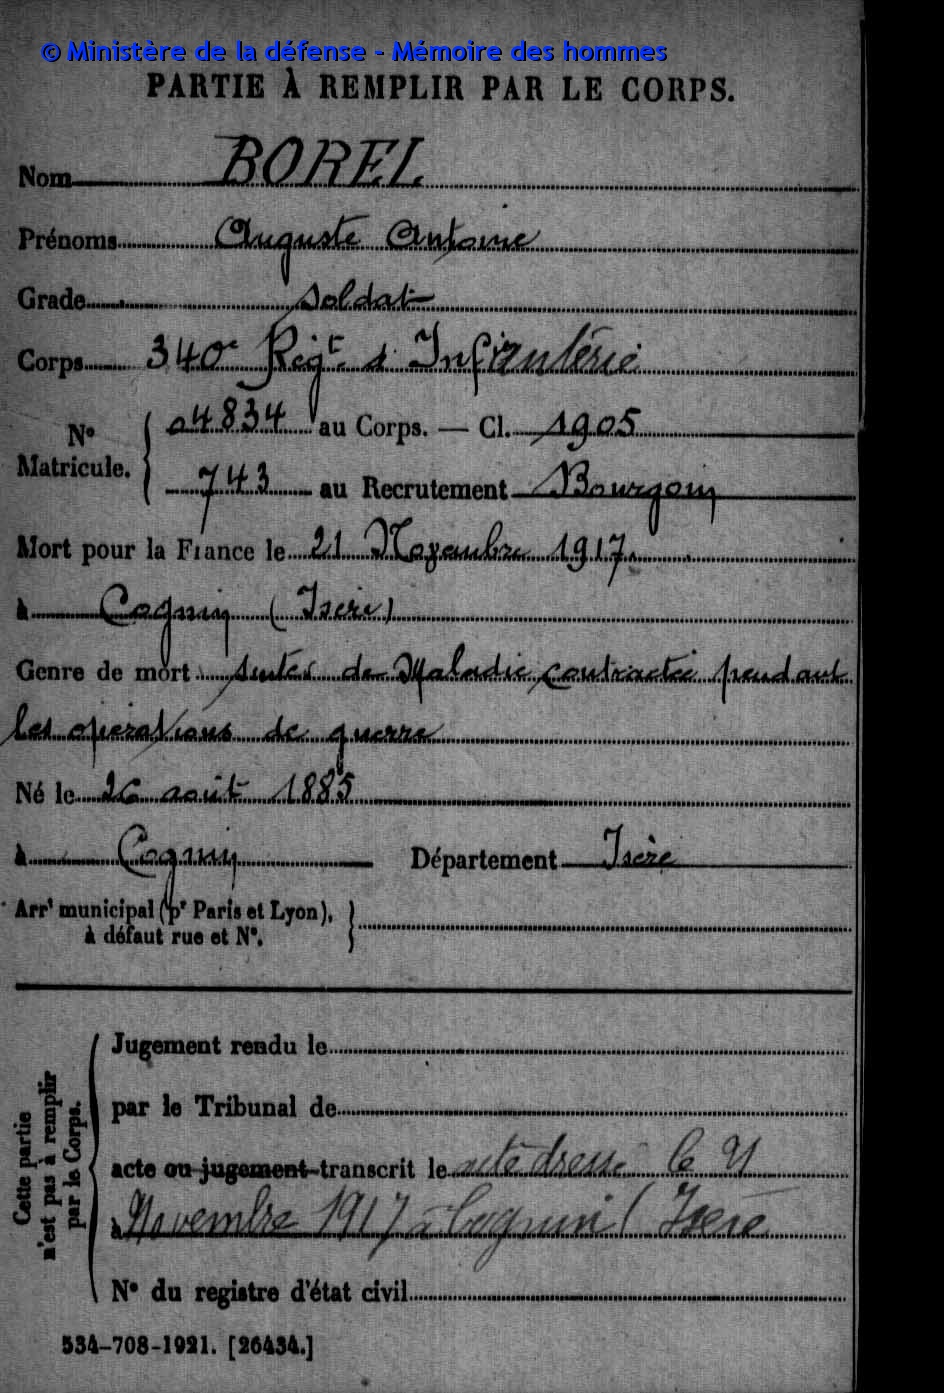 © Ministère de la défense - Mémoire des hommes
PARTIE À REMPLIR PAR LE CORPS.
Nom BOREL
Prénoms Auguste Antoine
Grade soldat
Corps 340e Régt d'Infanterie
No Matricule. 04834 au Corps. — Cl. 1905
743 au Recrutement Bourgoin
Mort pour la France le 21 Novembre 1917
à Cognin (Isère)
Genre de mort suites de Maladie contractée pendant
les opérations de guerre
Né le 26 août 1885
à Cognin Département Isère
Arrt municipal (pr Paris et Lyon),
à défaut rue et No.
Cette partie
n'est pas à remplir
par le Corps.
Jugement rendu le
par le Tribunal de
acte ou jugement transcrit le acte dressé le 21
à Novembre 1917 à Cognin (Isère
No du registre d'état civil
534-708-1921. [26434.]